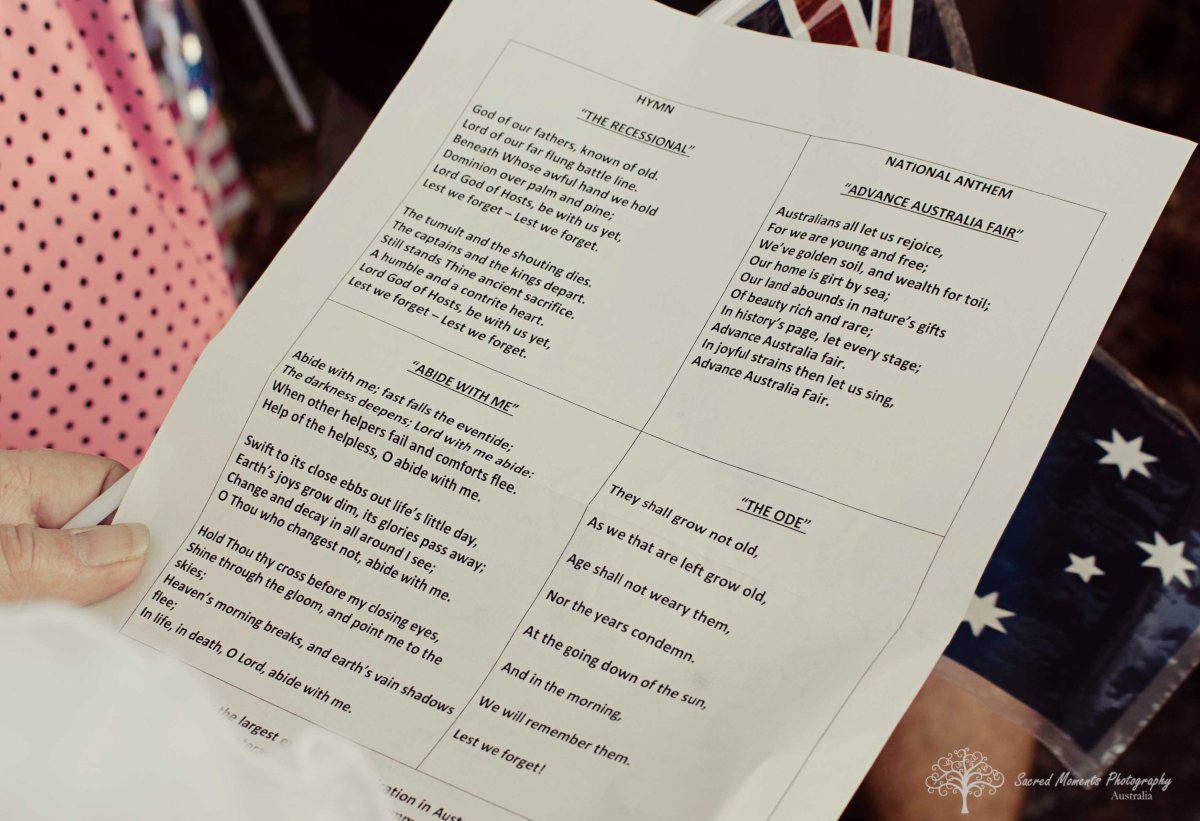 HYMN
“THE RECESSIONAL”
God of our fathers, known of old.
Lord of our far flung battle line.
Beneath Whose awful hand we hold
Dominion over palm and pine;
Lord God of Hosts, be with us yet,
Lest we forget – Lest we forget.
The tumult and the shouting dies.
The captains and the kings depart.
Still stands Thine ancient sacrifice.
A humble and a contrite heart.
Lord God of Hosts, be with us yet,
Lest we forget – Lest we forget.
NATIONAL ANTHEM
“ADVANCE AUSTRALIA FAIR”
Australians all let us rejoice,
For we are young and free;
We’ve golden soil, and wealth for toil;
Our home is girt by sea;
Our land abounds in nature’s gifts
Of beauty rich and rare;
In history’s page, let every stage;
Advance Australia fair.
In joyful strains then let us sing,
Advance Australia Fair.
“ABIDE WITH ME”
Abide with me; fast falls the eventide;
The darkness deepens; Lord with me abide:
When other helpers fail and comforts flee.
Help of the helpless, O abide with me.
Swift to its close ebbs out life’s little day,
Earth’s joys grow dim, its glories pass away;
Change and decay in all around I see;
O Thou who changest not, abide with me.
Hold Thou thy cross before my closing eyes,
Shine through the gloom, and point me to the
skies;
Heaven’s morning breaks, and earth’s vain shadows
flee;
In life, in death, O Lord, abide with me.
“THE ODE”
They shall grow not old,
As we that are left grow old,
Age shall not weary them,
Nor the years condemn.
At the going down of the sun,
And in the morning,
We will remember them.
Lest we forget!
the largest
in Aust
Sacred Moments Photography
Australia